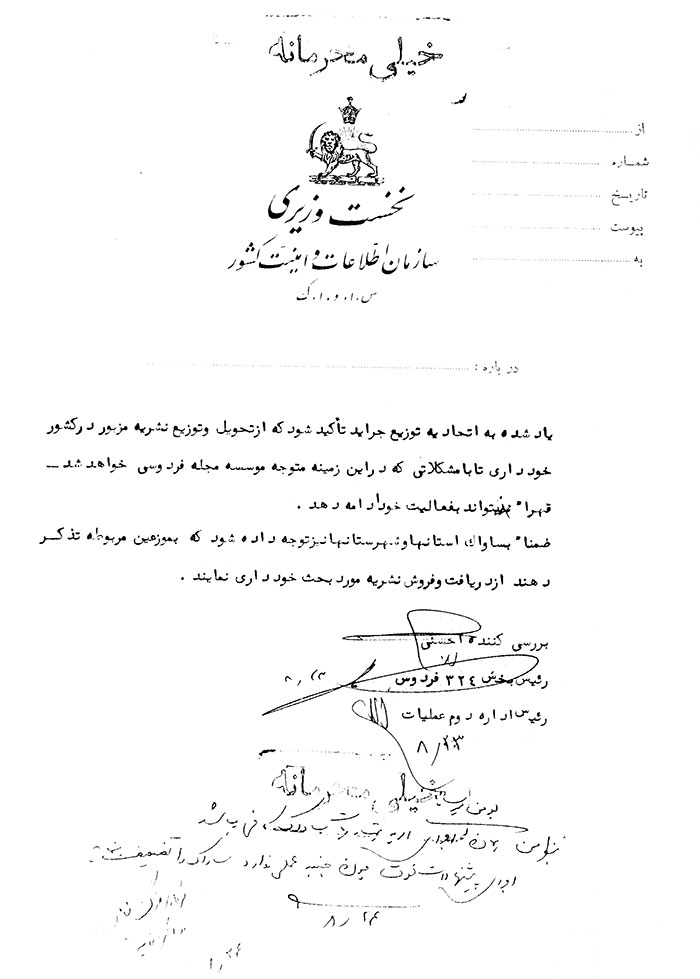 خیلی محرمانه
از
شماره
تاریخ
پیوست
به
نخست وزیری
سازمان اطلاعات و امنیت کشور
س.ا.و.ا.ک
درباره :
یاد شده به اتحادیه توزیع جراید تأکید شود که از تحویل وتوزیع نشریه مزبور درکشور
خودداری تا بامشکلاتی که دراین زمینه متوجه موسسه مجله فردوسی خواهد شد ـ
قهرا" نتواند بفعالیت خود ادامه دهد .
ضمنا" بساواک استانها وشهرستانها نیز توجه داده شود که بموزعین مربوطه تذکر
دهند از دریافت وفروش نشریه مورد بحث خودداری نمایند .
بررسی کننده احسنی
رئیس بخش ۳۲٤ فردوس
۸/۲۳
رئیس اداره دوم عملیات
۸/۲۳
خیلی محرمانه
اجرای پیشنهاد چون جنبه عملی ندارد ساواک را
۸/۲۴